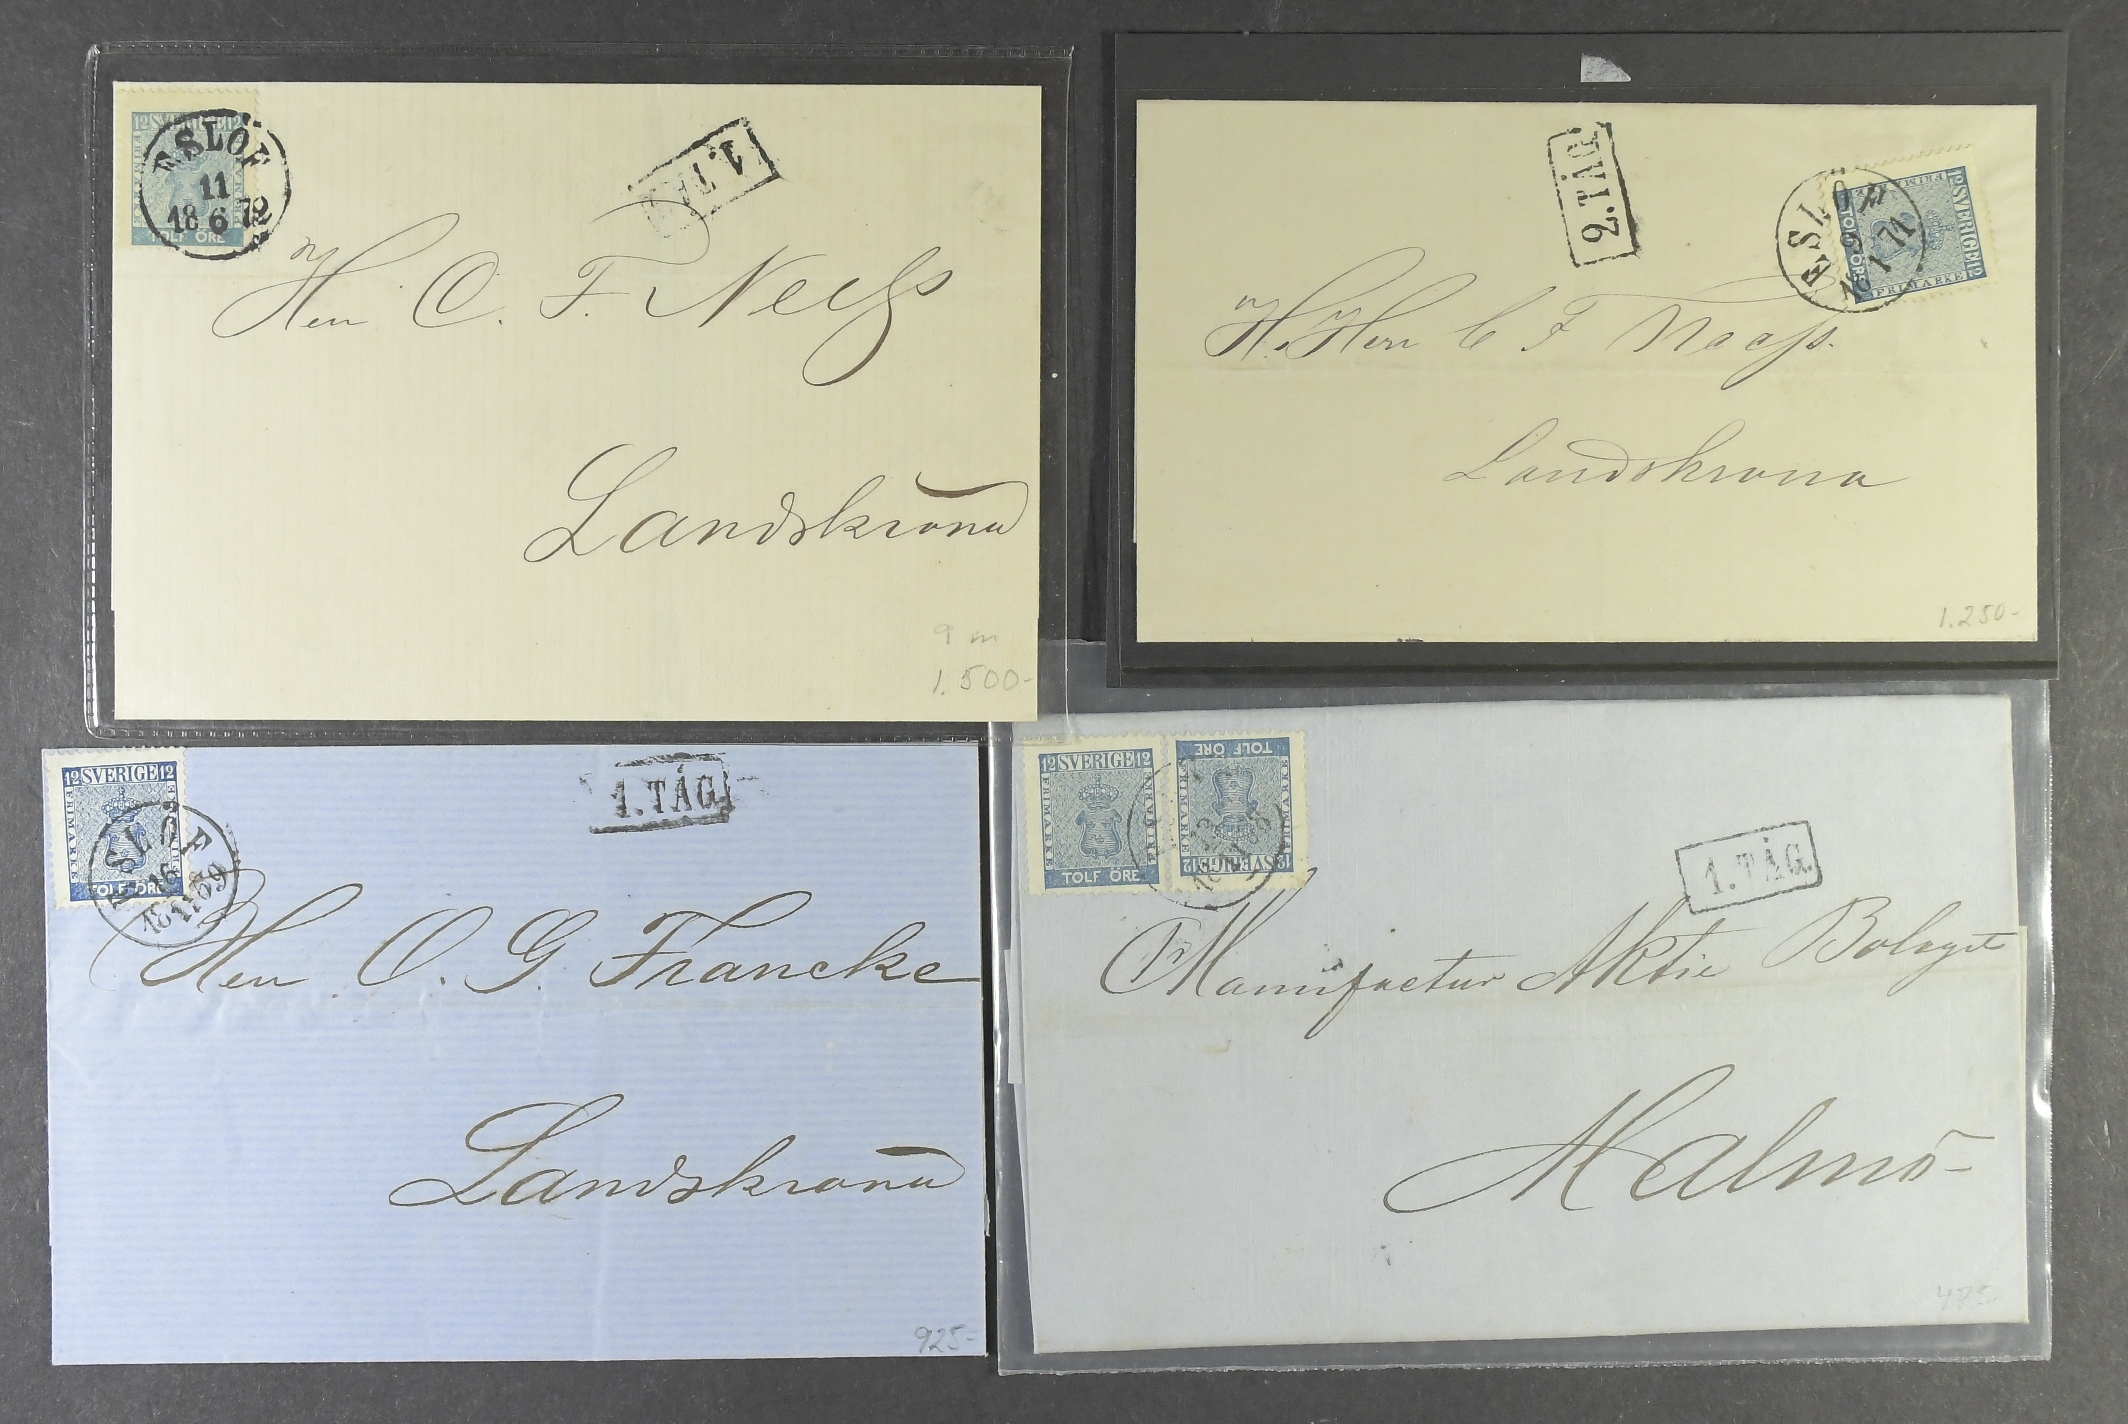 12 SVERIGE 12
FRIMARKE
TOLF ÖRE
ESLÖF
11
18 6 72
1. TÅG
Herr C. F. Neess
Landskrona
9 m
1.500-
2. TÅG
12 SVERIGE 12
FRIMARKE
FRIMARKE
TOLF ÖRE
ESLÖF
9
18 1 71
H. Herr C F Neess.
Landskrona
1.250-
12 SVERIGE 12
FRIMARKE
FRIMARKE
TOLF ÖRE
ESLÖF
16
18 11 69
1. TÅG
Herr O. G. Francke
Landskrona
925-
12 SVERIGE 12
FRIMARKE
FRIMARKE
TOLF ÖRE
12 SVERIGE 12
FRIMARKE
FRIMARKE
TOLF ÖRE
1. TÅG.
Manufactur Aktie Bolaget
Malmö
485